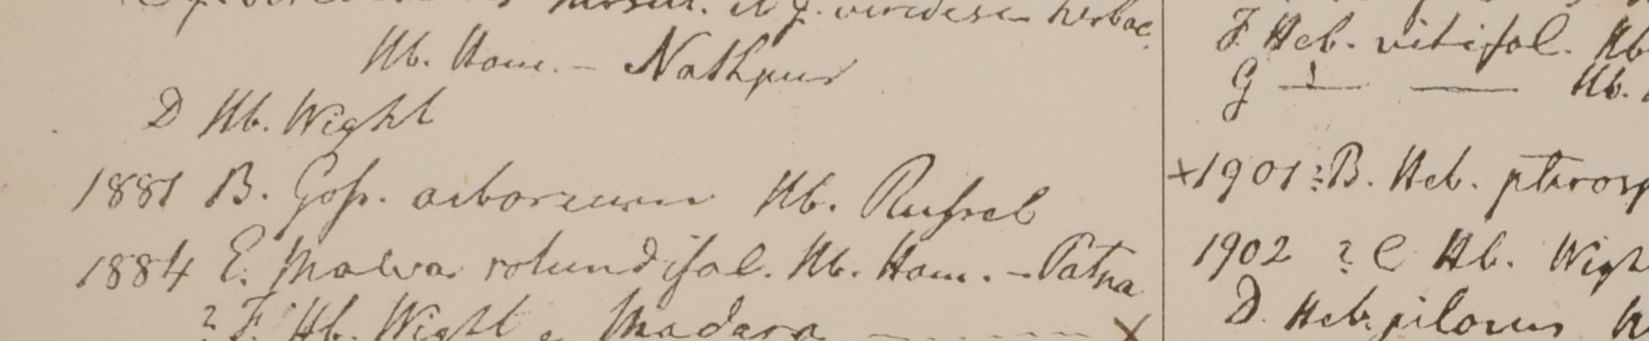 hirsut. et g. viridescen herbac.
Hb. Ham. - Nathpur
D Hb. Wight
1881 B. Gofs. arboreum Hb. Rufsel
1884 E. Malva rotundifol. Hb. Ham. - Patna
? F. Hb. Wight e Madara - - - - - X
F. Heb. vitifol. Hb
G — — Hb.
x 1901 ? B. Heb. pterosp
1902 ? C Hb. Wight
D. Heb. pilosus H